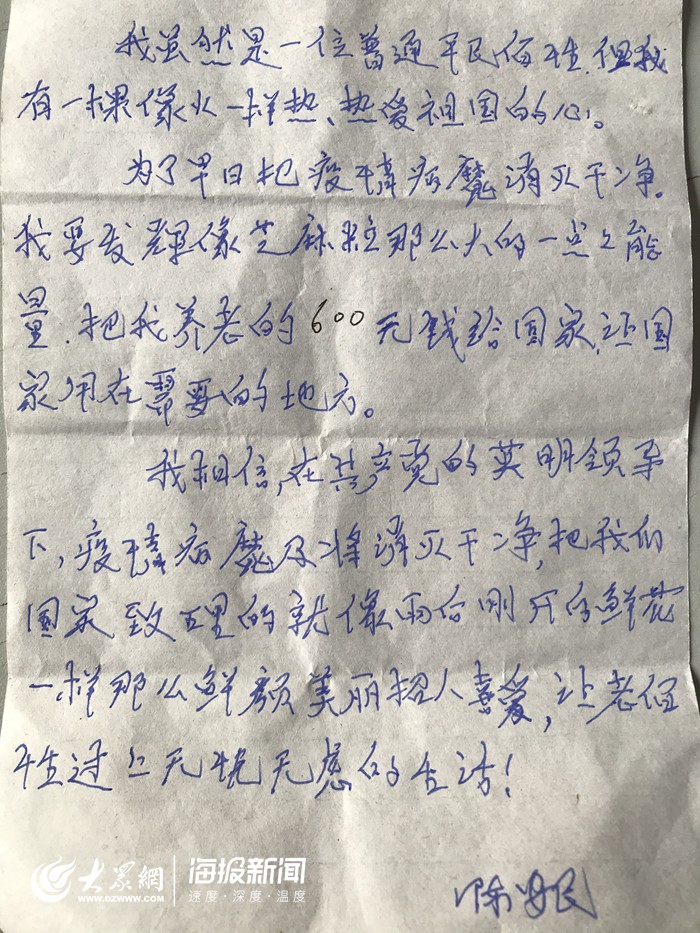 我虽然是一位普通平民佰姓.但我
有一棵像火一样热、热爱祖国的心。
为了早日把疫情病魔消灭干净。
我要发挥像芝麻粒那么大的一点点能
量.把我养老的600元钱给国家.让国
家用在需要的地方。
我相信,在共产党的英明领导
下,疫情病魔及将消灭干净,把我们
国家致理的就像雨后刚开的鲜花
一样那么鲜颜美丽招人喜爱,让老佰
姓过上无忧无虑的生活!
陈 民
大众網
WWW.DZWWW.COM
海报新闻
速度·深度·温度